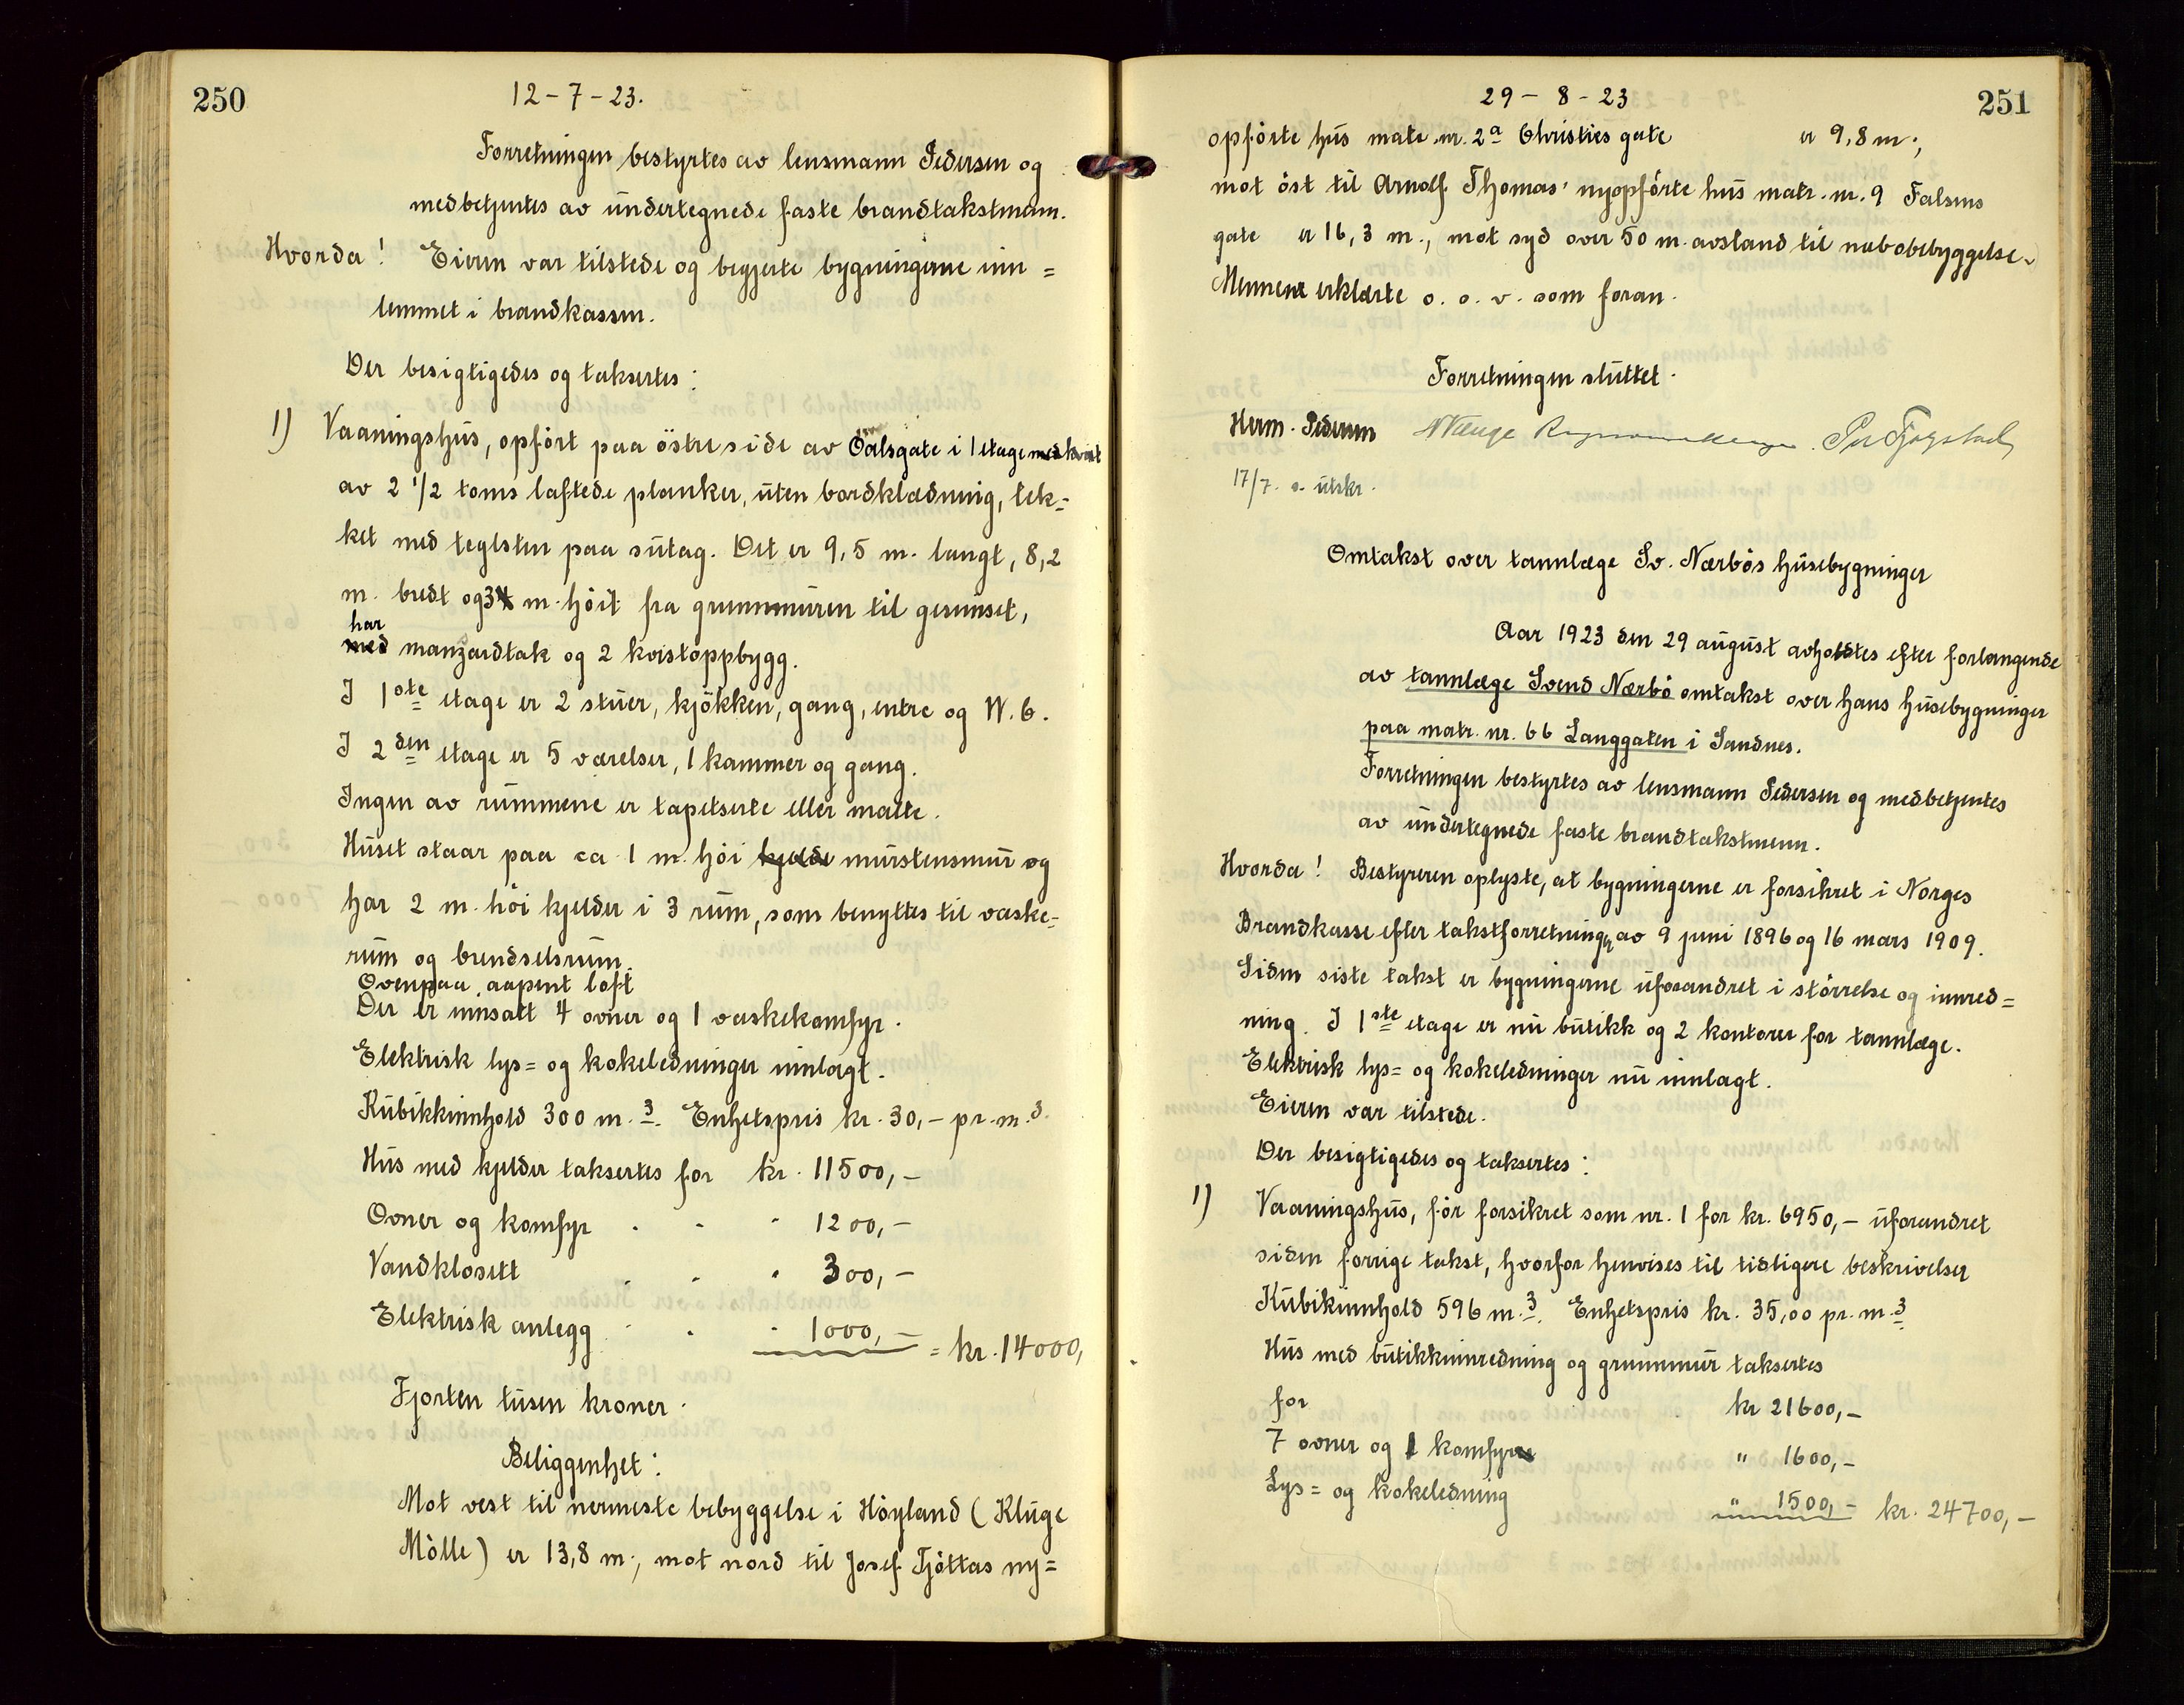 250
12-7-23.
Forretningen bestyrtes av lensmann Pedersen og
medbetjentes av undertegnede faste brandtakstmenn.
Hvorda! Eieren var tilstede og begjerte bygningerne inn=
lemmet i brandkassen.
Der besigtigedes og taksertes:
1) Vaaningshus, opført paa østre side av Ôalsgate i 1 etage med kvist
av 2 1/2 toms laftede planker, uten bordklædning, tek=
ket med teglsten paa sutag. Det er 9,5 m. langt, 8,2
m. bredt og 3,4 m. høit fra grunnmuren til gesimset,
har
med manzardtak og 2 kvistoppbygg.
I 1ste etage er 2 stuer, kjøkken, gang, entre og W.C.
I 2den etage er 5 værelser, 1 kammer og gang.
Ingen av rummene er tapetserte eller malte.
Huset staar paa ca 1 m. høi kjelde murstensmur og
har 2 m. høi kjelder i 3 rum, som benyttes til vaske=
rum og brendselsrum.
Ovenpaa aapent loft
Der er innsatt 4 ovner og 1 vaskekomfyr.
Elektrisk lys= og kokeledninger innlagt.
Kubikkinnhold 300 m.3. Enhetspris kr. 30,- pr. m.3.
Hus med kjelder taksertes for kr. 11500,-
Ovner og komfyr " " " 1200,-
Vandklosett " " " 300,-
Elektrisk anlegg " " " 1000,- = kr. 14000,
Fjorten tusen kroner.
Beliggenhet:
Mot vest til nermeste bebyggelse i Høyland (Kluge
Mølle) er 13,8 m., mot nord til Josef Tjøttas ny=
29-8-23
251
opførte hus matr. nr. 2a Christies gate er 9,8 m.,
mot øst til Arnolf Thomas' nyopførte hus matr. nr. 9 Falsens
gate er 16,3 m., mot syd over 50 m. avstand til nabobebyggelse.
Mennene erklærte o. s. v. som foran.
Forretningen sluttet.
Herm. Pedersen Per Fjogstad
17/7. s. utskr.
Omtakst over tannlæge Sv. Nærbøs husebygninger
Aar 1923 den 29 august avholdtes efter forlangende
av tannlæge Svend Nærbø omtakst over hans husebygninger
paa matr. nr. 66 Langgaten i Sandnes.
Forretningen bestyrtes av lensmann Pedersen og medbetjentes
av undertegnede faste brandtakstmenn.
Hvorda! Bestyreren oplyste, at bygningerne er forsikret i Norges
Brandkasse efter takstforretninger av 9 juni 1896 og 16 mars 1909.
Siden siste takst er bygningerne uforandret i størrelse og innred=
ning. I 1ste etage er nu butikk og 2 kontorer for tannlæge.
Elektrisk lys= og kokeledninger nu innlagt.
Eieren var tilstede.
Der besigtigedes og taksertes:
1) Vaaningshus, før forsikret som nr. 1 for kr. 6950,- uforandret
siden forrige takst, hvorfor henvises til tidligere beskrivelser
Kubikinnhold 596 m.3. Enhetspris kr. 35,00 pr. m.3
Hus med butikkinnredning og grunnmur taksertes
for kr 21600,-
7 ovner og 1 komfyr " 1600,-
Lys= og kokeledning " 1500,- kr. 24700,-